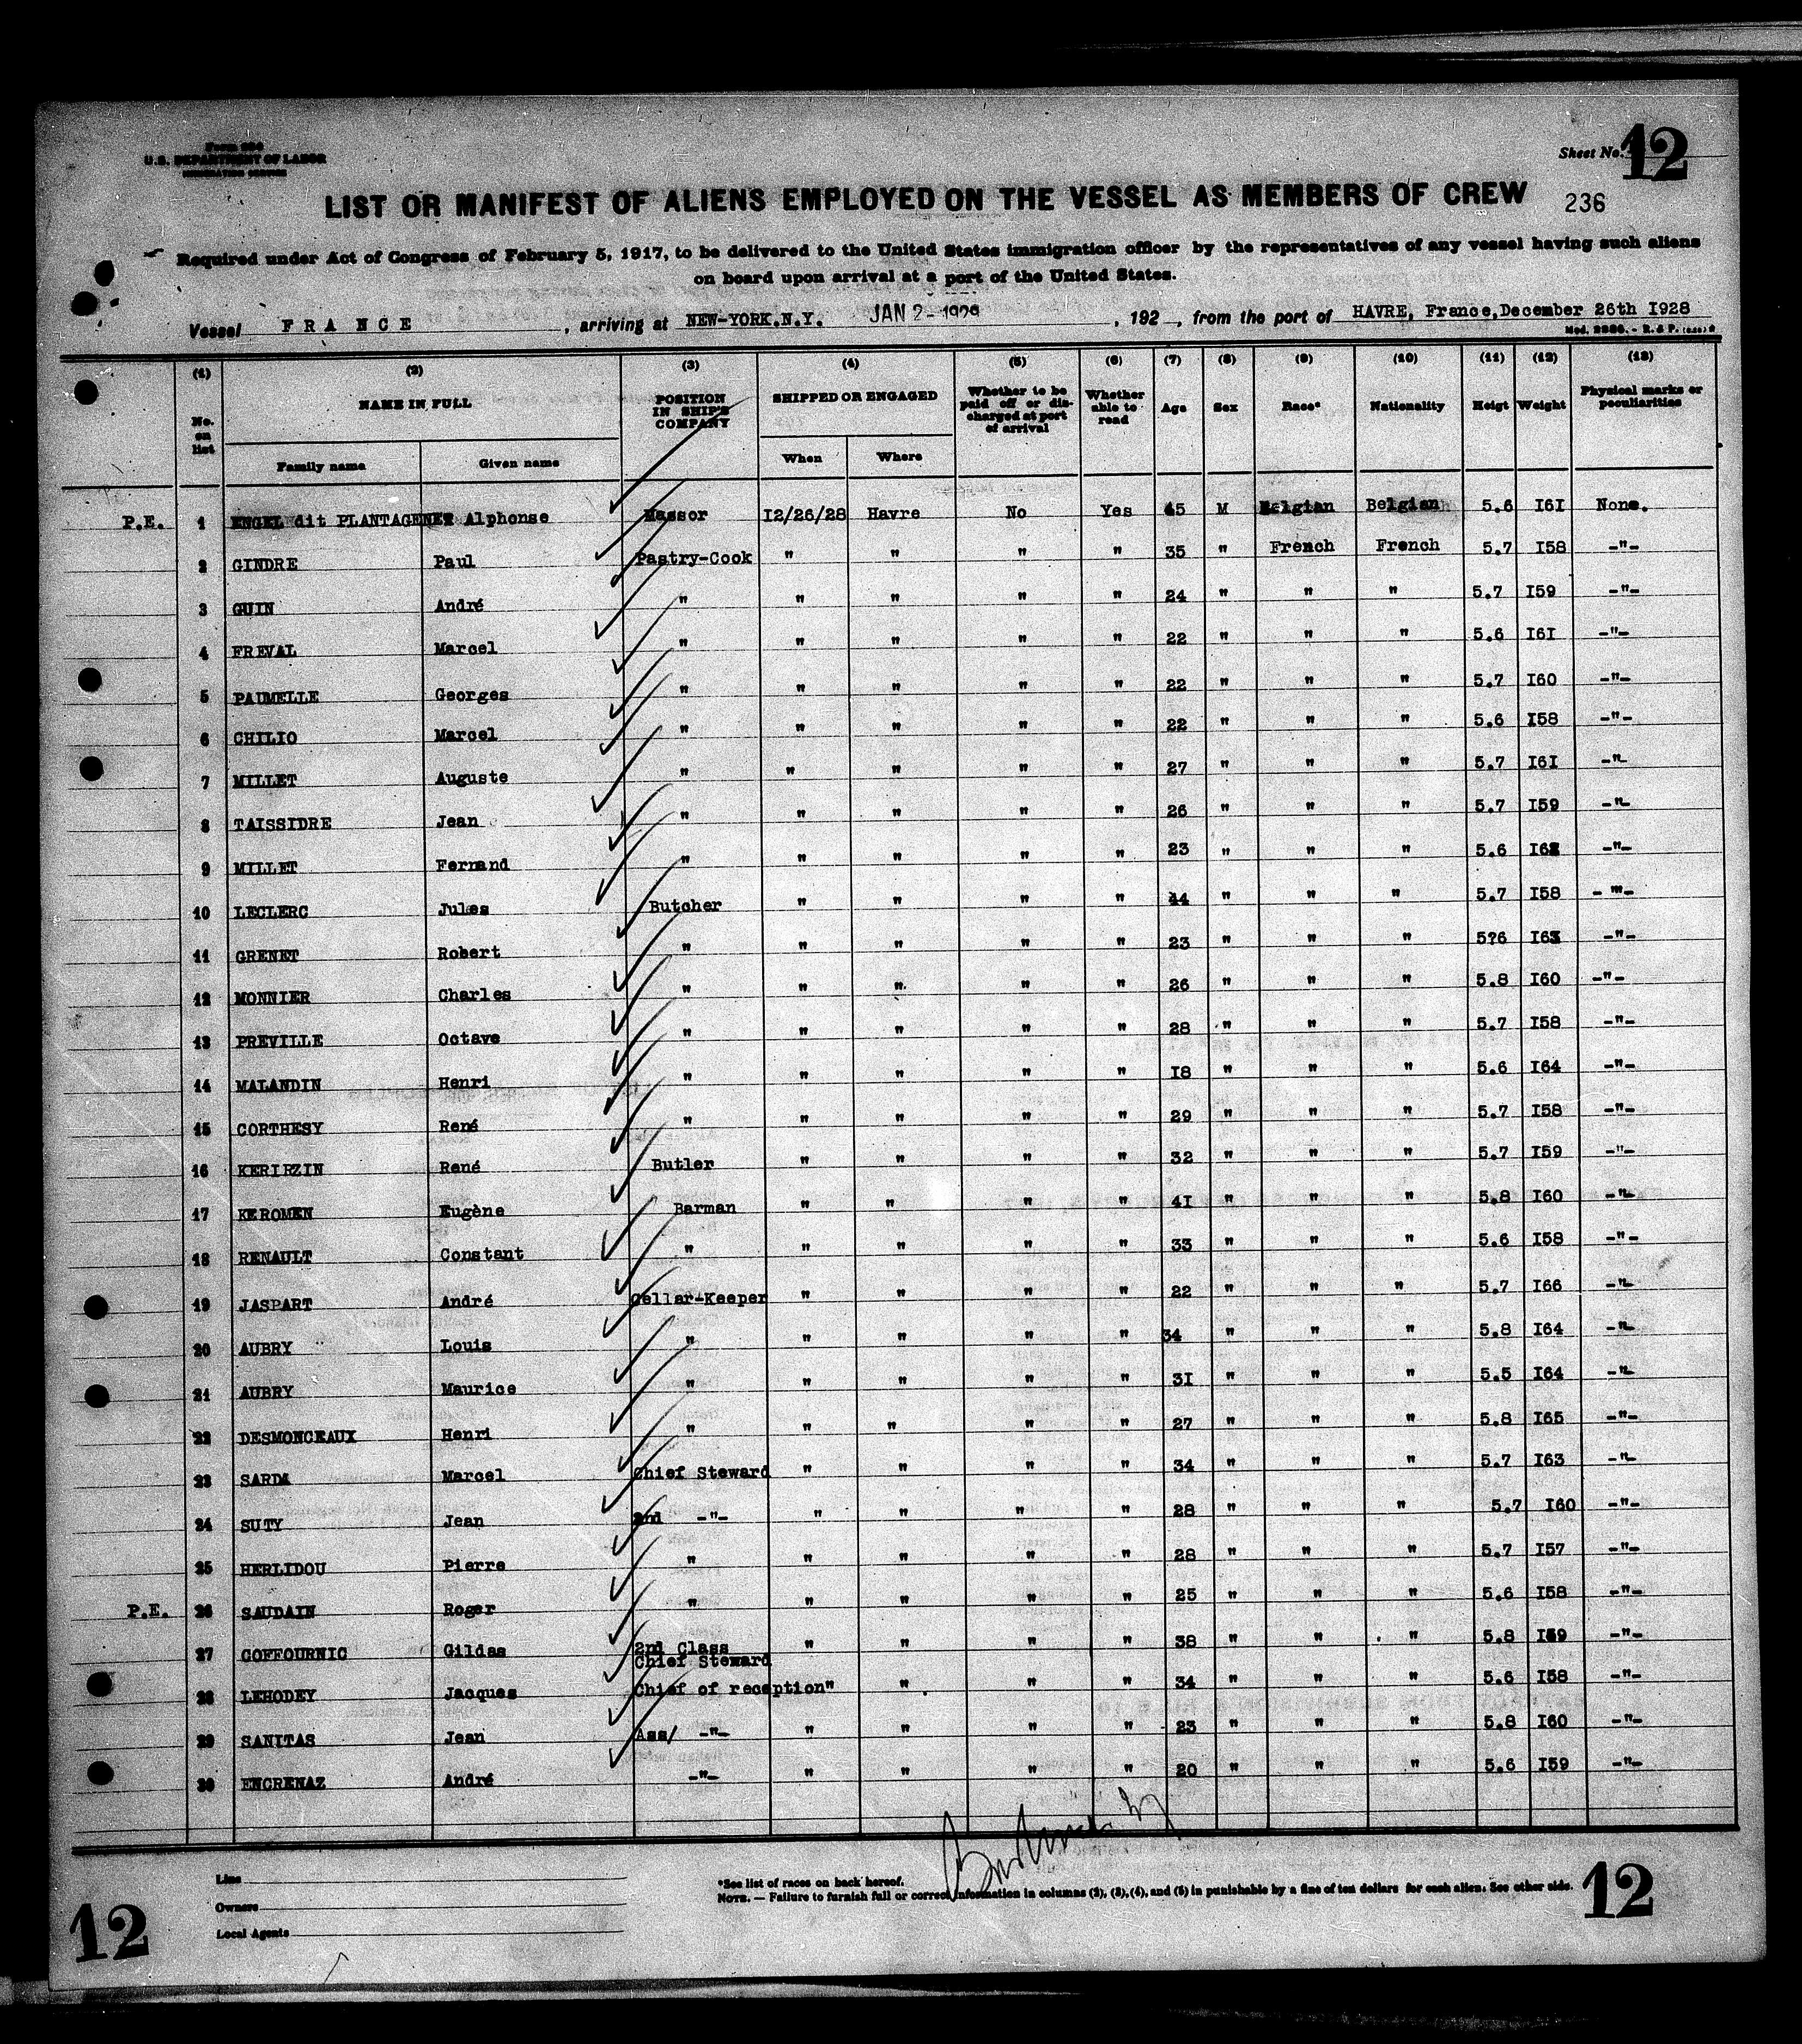 Form 680
U.S. DEPARTMENT OF LABOR
IMMIGRATION SERVICE
Sheet No. 12
LIST OR MANIFEST OF ALIENS EMPLOYED ON THE VESSEL AS MEMBERS OF CREW
236
Required under Act of Congress of February 5, 1917, to be delivered to the United States immigration officer by the representatives of any vessel having such aliens
on board upon arrival at a port of the United States.
Vessel FRANCE, arriving at NEW-YORK.N.Y. JAN 2-1929, 192 , from the port of HAVRE, France,December 26th I928
(1) (2) (3) (4) (5) (6) (7) (8) (9) (10) (11) (12) (13)
No. on list NAME IN FULL POSITION IN SHIP'S COMPANY SHIPPED OR ENGAGED Whether to be paid off or discharged at port of arrival Whether able to read Age Sex Race* Nationality Heigt Weight Physical marks or peculiarities
Family name Given name When Where
P.E. 1 ENGEL dit PLANTAGENET Alphonse Massor I2/26/28 Havre No Yes 45 M Belgian Belgian 5.6 I6I None.
2 GINDRE Paul Pastry-Cook " " " " 35 " French French 5.7 I58 -"-
3 GUIN André " " " " " 24 " " " 5.7 I59 -"-
4 FREVAL Marcel " " " " " 22 " " " 5.6 I6I -"-
5 PAUMELLE Georges " " " " " 22 " " " 5.7 I60 -"-
6 CHILIO Marcel " " " " " 22 " " " 5.6 I58 -"-
7 MILLET Auguste " " " " " 27 " " " 5.7 I6I -"-
8 TAISSIDRE Jean " " " " " 26 " " " 5.7 I59 -"-
9 MILLET Fernand " " " " " 23 " " " 5.6 -"-
10 LECLERC Jules Butcher " " " " 44 " " " 5.7 I58 -"-
11 GRENET Robert " " " " " 23 " " " 5?6 I63 -"-
12 MONNIER Charles " " " " " 26 " " " 5.8 I60 -"-
13 PREVILLE Octave " " " " " 28 " " " 5.7 I58 -"-
14 MALANDIN Henri " " " " " I8 " " " 5.6 I64 -"-
15 CORTHESY René " " " " " 29 " " " 5.7 I58 -"-
16 KERIRZIN René Butler " " " " 32 " " " 5.7 I59 -"-
17 KEROMEN Eugène Barman " " " " 4I " " " 5.8 I60 -"-
18 RENAULT Constant " " " " " 33 " " " 5.6 I58 -"-
19 JASPART André Cellar-Keeper " " " " 22 " " " 5.7 I66 -"-
20 AUBRY Louis " " " " " 34 " " " 5.8 I64 -"-
21 AUBRY Maurice " " " " " 3I " " " 5.5 I64 -"-
22 DESMONCEAUX Henri " " " " " 27 " " " 5.8 I65 -"-
23 SARDA Marcel Chief Steward " " " " 34 " " " 5.7 I63 -"-
24 SUTY Jean 2nd -"- " " " " 28 " " " 5.7 I60 -"-
25 HERLIDOU Pierre " " " " " 28 " " " 5.7 I57 -"-
P.E. 26 SAUDAIN Roger " " " " " 25 " " " 5.6 I58 -"-
27 COFFOURNIC Gildas 2nd Class Chief Steward " " " " 38 " " " 5.8 I59 -"-
28 LEHODEY Jacques Chief of reception" " " " 34 " " " 5.6 I58 -"-
29 SANITAS Jean Ass/ -"- " " " " 23 " " " 5.8 I60 -"-
30 ENCRENAZ André -"- " " " " 20 " " " 5.6 I59 -"-
Line
Owners
Local Agents
*See list of races on back hereof.
NOTE. — Failure to furnish full or correct information in columns (2), (3),(4), and (5) in punishable by a fine of ten dollars for each alien. See other side.
12
12